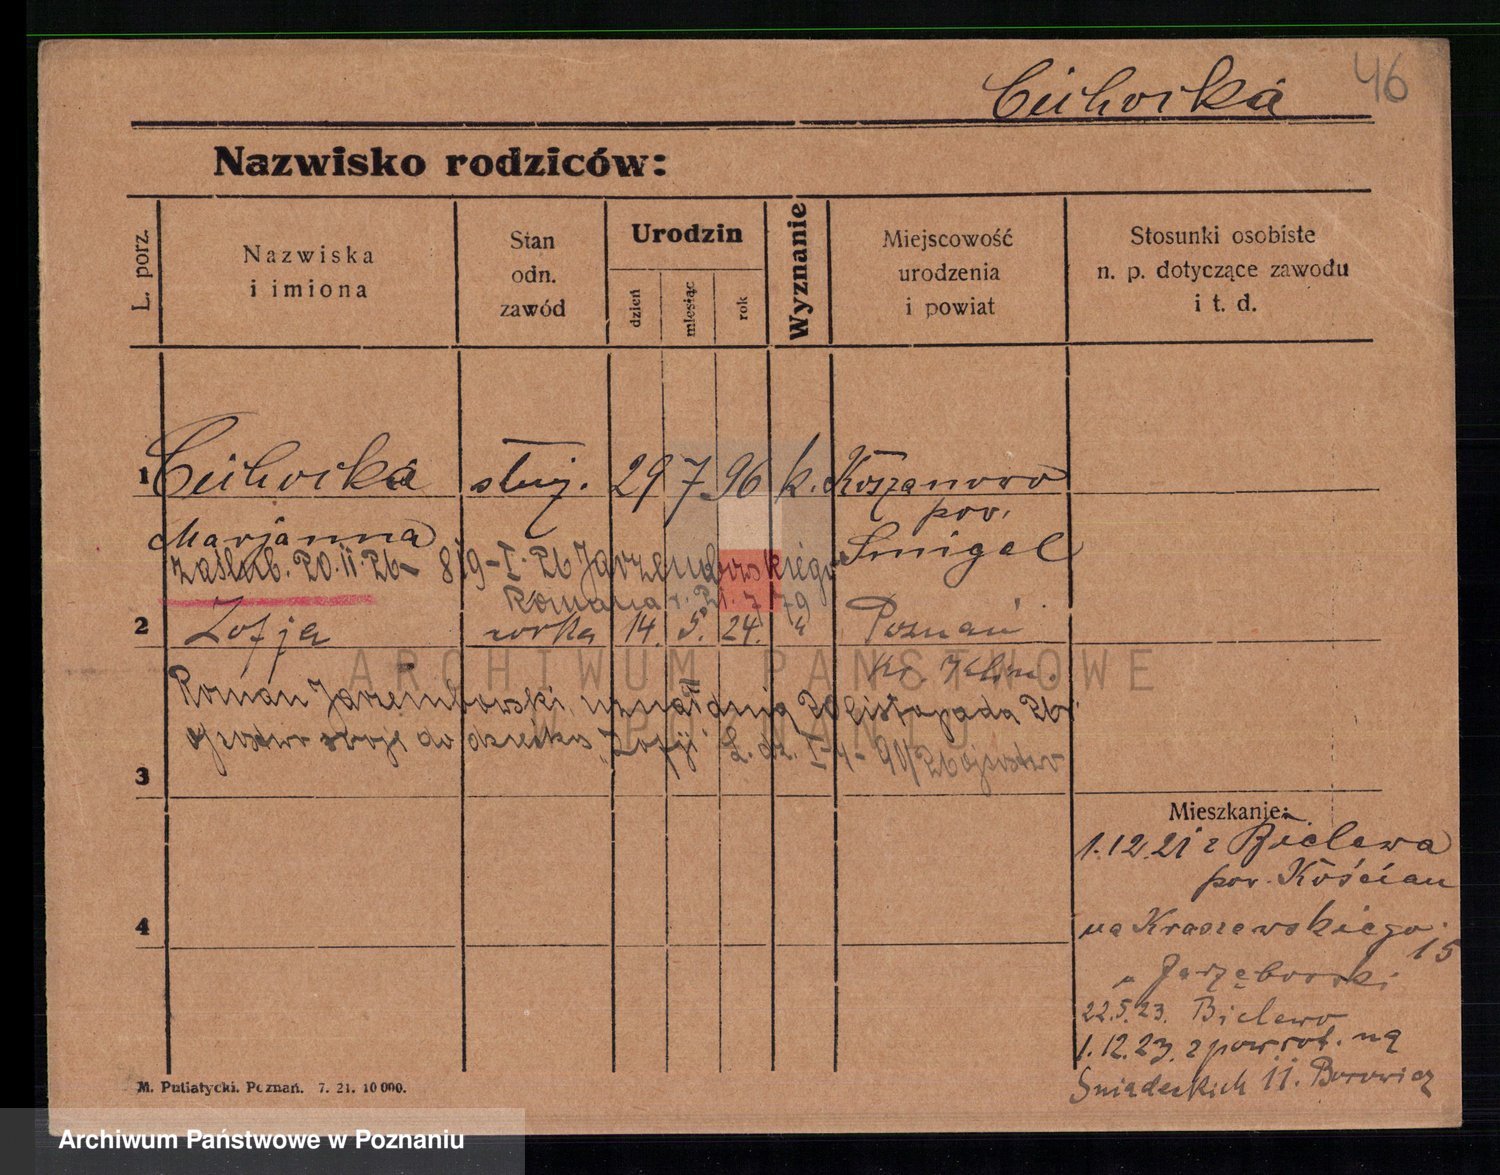 46
Cichocka
Nazwisko rodziców:
L. porz.
Nazwiska
i imiona
Stan
odn.
zawód
Urodzin
dzień
miesiąc
rok
Wyznanie
Miejscowość
urodzenia
i powiat
Stosunki osobiste
n. p. dotyczące zawodu
i t. d.
1 Cichocka służ. 29 7 96 k. Koszanowo
pow.
Marjanna Śmigel
zaślub. 20.11.26 - 819-I-26 Jarzemborskiego
Romana r. 21.7 79
2 Zofja córka 14. 5. 24. " Poznań
Roman Jarzemborski uznał dnia 20 listopada 26 r.
ojcostwo swoje do dziecka "Zofji" L. dz. I-4-90/26 ojcostwo
3
Mieszkanie:
1.12.21 z Bielewa
pow. Kościan
na Kraszewskiego 15
" Jarzęborski
22.5.23. Bielewo
1.12.23. z powrot. na
Śniadeckich 11. Borowicz
4
M. Putiatycki. Poznań. 7. 21. 10 000.
ARCHIWUM PAŃSTWOWE
W POZNANIU
Archiwum Państwowe w Poznaniu